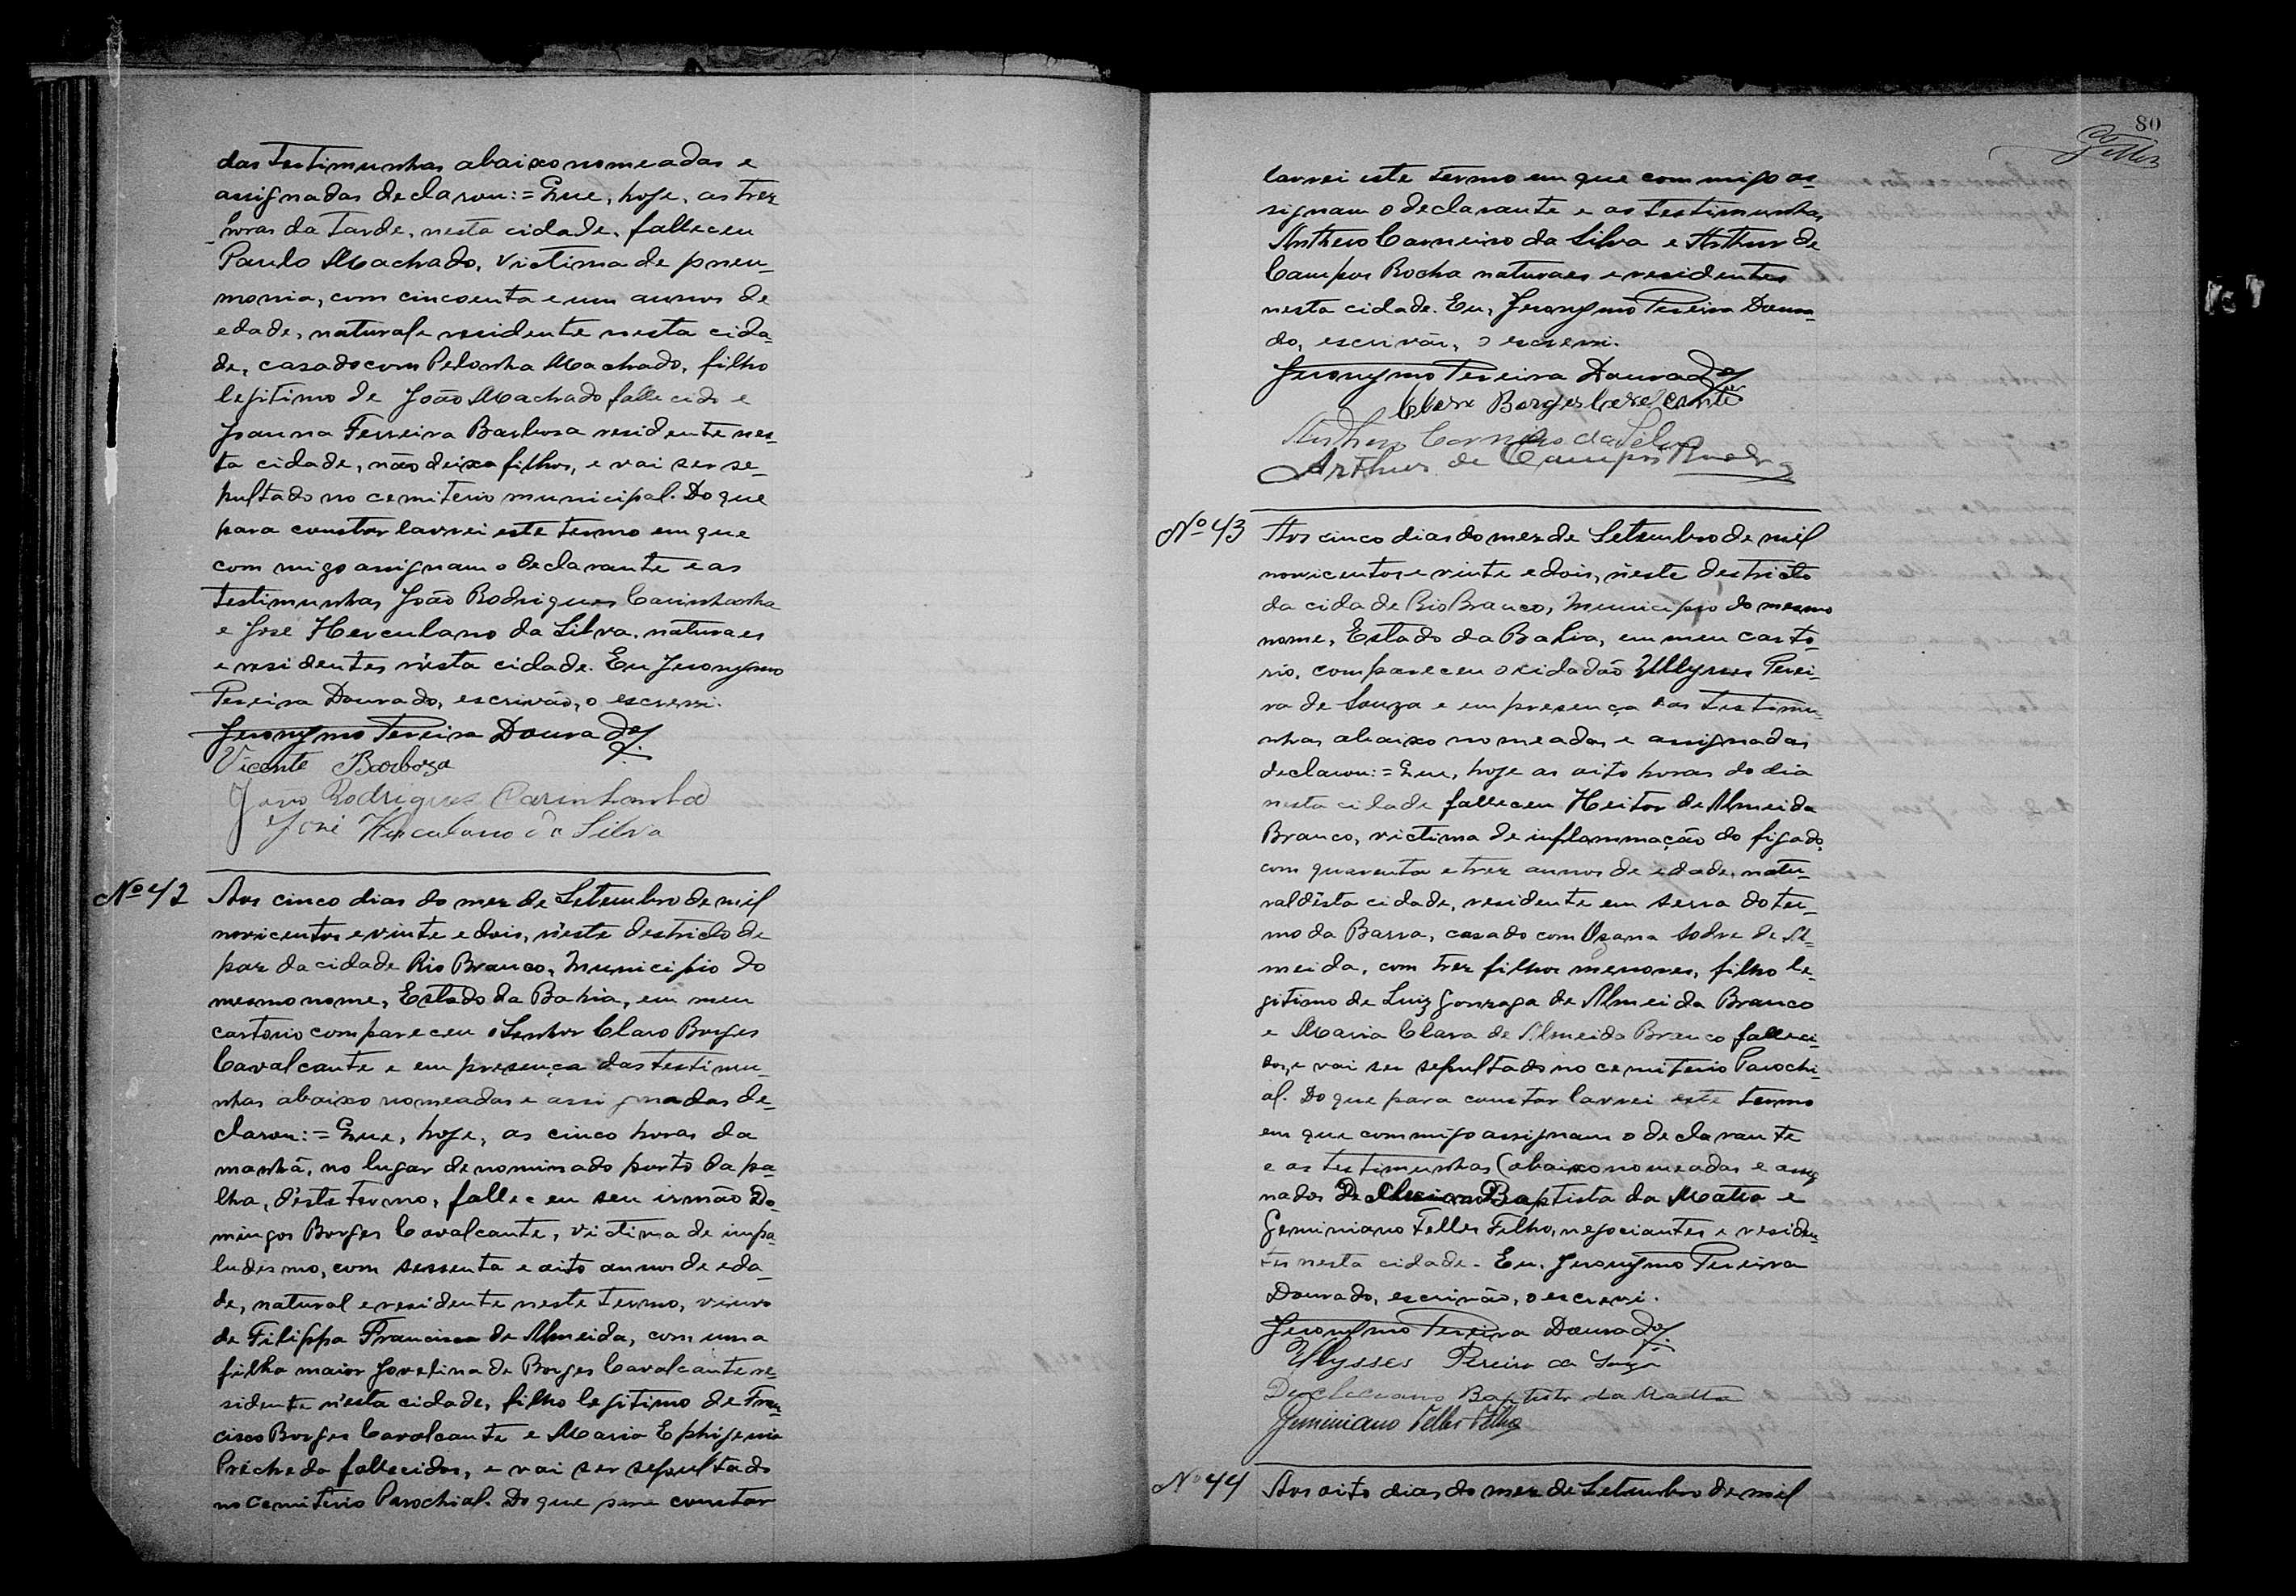 das testimunhas abaixo nomeadas e
assignadas declarou:=Que, hoje, as trez
horas da tarde, nesta cidade, falleceu
Paulo Machado, victima de pneu-
monia, com cincoenta e um annos de
edade, natural e residente nesta cida-
de, casado com Pelonha Machado, filho
legitimo de João Machado fallecido e
Joanna Ferreira Barbosa residente nes-
ta cidade, não deixa filhos, e vai ser se-
pultado no cemiterio municipal. Do que
para constar lavrei este termo em que
commigo assignam o declarante e as
testimunhas João Rodrigues Carinhanha
e José Herculano da Silva, naturaes
e residentes n'esta cidade. Eu Jeronymo
Pereira Dourado, escrivão, o escrevi.
Jeronymo Pereira Dourado
Vicente Barboza
João Rodrigues Carinhanha
José Herculano da Silva
Nº 42 Aos cinco dias do mez de Setembro de mil
novicentos e vinte e dois, n'este destricto de
paz da cidade Rio Branco, Municipio do
mesmo nome, Estado da Bahia, em meu
cartorio compareceu o Senhor Claro Borges
Cavalcante e em presença das testimu-
nhas abaixo nomeadas e assignadas de-
clarou:=Que, hoje, as cinco horas da
manhã, no lugar denominado porto da pa-
lha, d'este termo, falleceu seu irmão Do-
mingos Borges Cavalcante, victima de impa-
ludesmo, com sessenta e oito annos de eda-
de, natural e residente neste termo, viuvo
de Filippa Francisca de Almeida, com uma
filha maior Jovelina de Borges Cavalcante re-
sidente n'esta cidade, filho legitimo de Fran-
cisco Borges Cavalcante e Maria Ephigenia
fallecidos, e vai ser sepultado
no Cemiterio Parochial. Do que para constar
80
Telles
lavrei este termo em que commigo as-
signam o declarante e as testimunhas
Anthero Carneiro da Silva e Arthur de
Campos Rocha naturaes e residentes
nesta cidade. Eu, Jeronymo Pereira Doura-
do, escrivão, o escrevi.
Jeronymo Pereira Dourado
Claro Borges Cavalcante
Anthero Carneiro da Silva
Arthur de Campos Rocha
Nº 43 Aos cinco dias do mez de Setembro de mil
novicentos e vinte e dois, n'este destricto
da cidade Rio Branco, Municipio do mesmo
nome, Estado da Bahia, em meu carto-
rio, compareceu o cidadão Ullysses Perei-
ra de Souza e em presença das testimu-
nhas abaixo nomeadas e assignadas
declarou:=Que, hoje as oito horas do dia
nesta cidade falleceu Heitor de Almeida
Branco, victima de inflammação do figado,
com quarenta e trez annos de edade, natu-
ral d'esta cidade, residente em serra do ter-
mo da Barra, casado com Osana Sodre de Al-
meida, com trez filhos menores, filho le-
gitimo de Luiz Gonzaga de Almeida Branco
e Maria Clara de Almeida Branco falleci-
dos, e vai ser sepultado no cemiterio Parochi-
al. Do que para constar lavrei este termo
em que commigo assignam o declarante
e as testimunhas (abaixo nomeadas e assig
nados Deocleciano Baptista da Matta e
Geminiano Telles Filho, negociantes e residen-
tes nesta cidade. Eu, Jeronymo Pereira
Dourado, escrivão, o escrevi.
Jeronymo Pereira Dourado
Ullysses Pereira de Souza
Deocleciano Baptista da Matta
Geminiano Telles Filho
Nº 44 Aos oito dias do mez de Setembro de mil